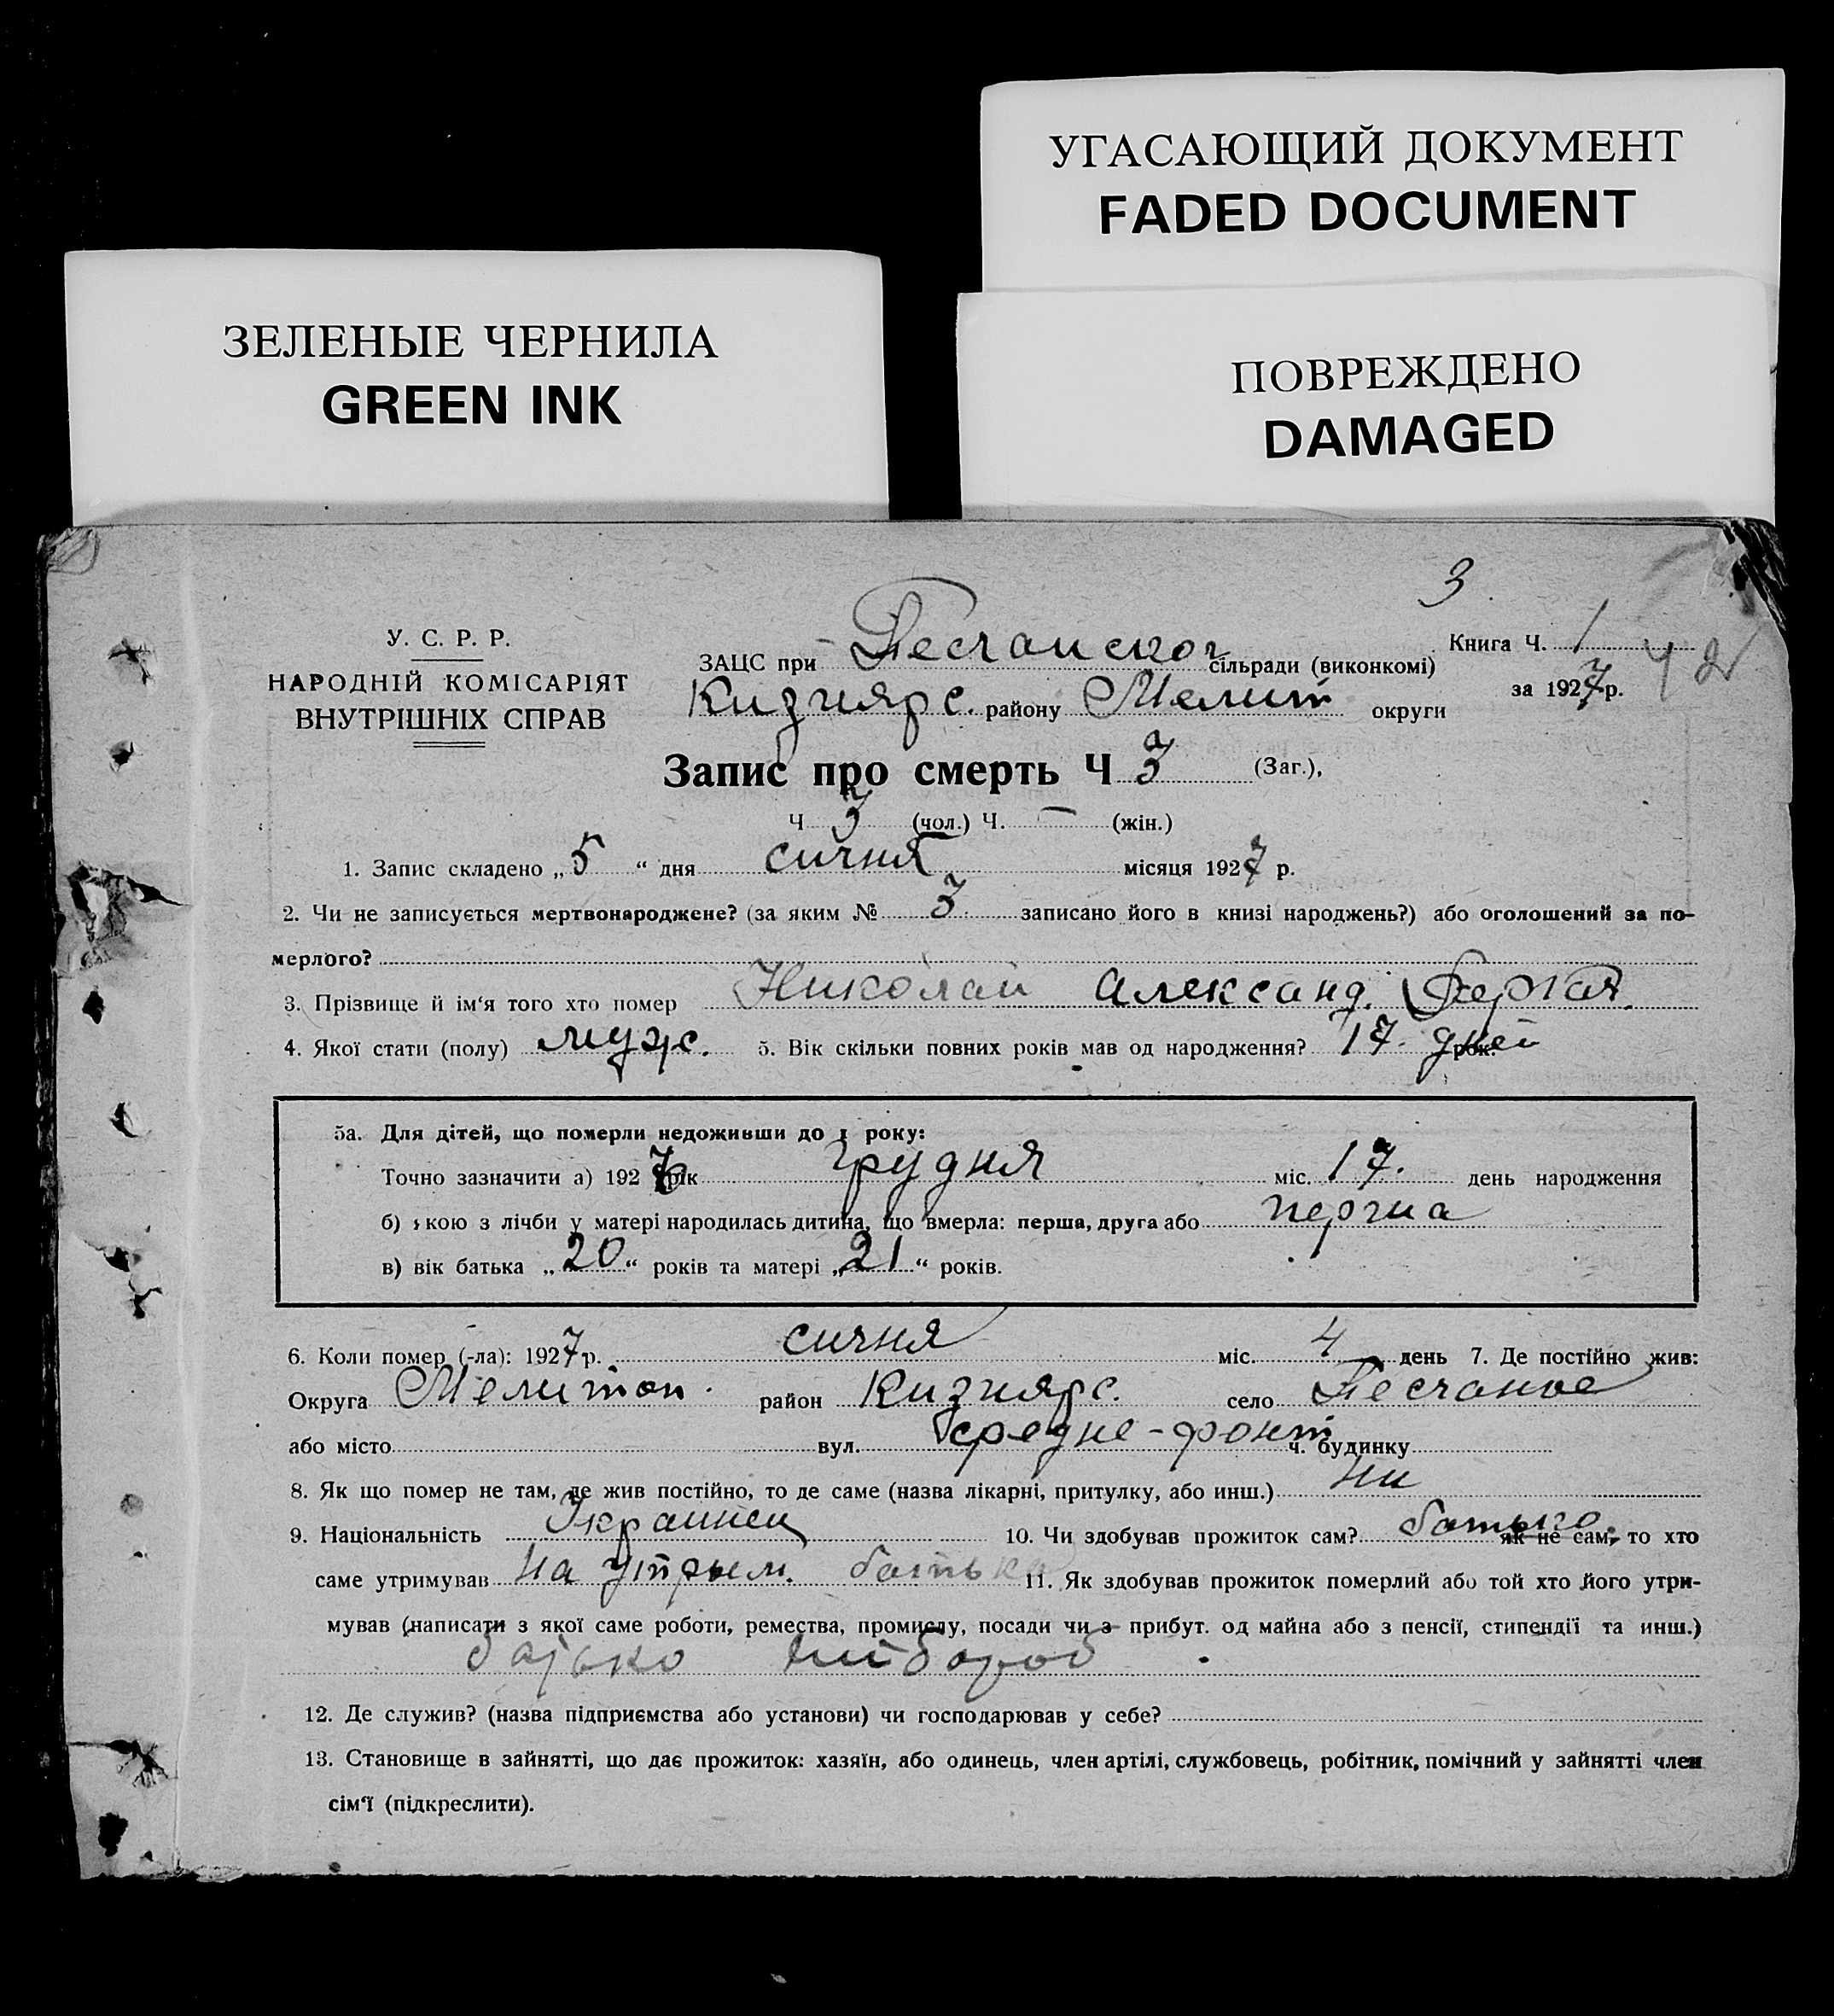 УГАСАЮЩИЙ ДОКУМЕНТ
FADED DOCUMENT
ЗЕЛЕНЫЕ ЧЕРНИЛА
GREEN INK
ПОВРЕЖДЕНО
DAMAGED
3
У. С. Р. Р.
НАРОДНІЙ КОМІСАРІЯТ
ВНУТРІШНІХ СПРАВ
ЗАЦС при Песчаског сільради (виконкомі)
Книга Ч. 1
Кизиярс. району Мелит округи
за 1927 р.
Запис про смерть Ч 3 (Заг.),
Ч 3 (чол.) Ч. — (жін.)
1. Запис складено „5“ дня сичня місяця 1927 р.
2. Чи не записується мертвонароджене? (за яким № 3 записано його в книзі народжень?) або оголошений за по-
мерлого?
3. Прізвище й ім‘я того хто помер Николай Александ.
4. Якої стати (полу) мужс. 5. Вік скільки повних років мав од народження? 17 дней рок.
5а. Для дітей, що померли недоживши до 1 року:
Точно зазначити а) 192 рік грудня міс. 17. день народження
б) якою з лічби у матері народилась дитина, що вмерла: перша, друга або перша
в) вік батька „20“ років та матері „21“ років.
6. Коли помер (-ла): 1927 р. сичня міс. 4 день 7. Де постійно жив:
Округа Мелитоп. район Кизиярс. село Песчаное
або місто вул. Средне-фонт ч. будинку
8. Як що помер не там, де жив постійно, то де саме (назва лікарні, притулку, або инш.) ни
9. Національність Украинец 10. Чи здобував прожиток сам? батько як не сам, то хто
саме утримував на утрым. батька 11. Як здобував прожиток померлий або той хто його утри-
мував (написати з якої саме роботи, ремества, промислу, посади чи з прибут. од майна або з пенсії, стипендії та инш.)
батько хлибороб
12. Де служив? (назва підприємства або установи) чи господарював у себе?
13. Становище в зайнятті, що дає прожиток: хазяїн, або одинець, член артілі, службовець, робітник, помічний у зайнятті член
сім‘ї (підкреслити).